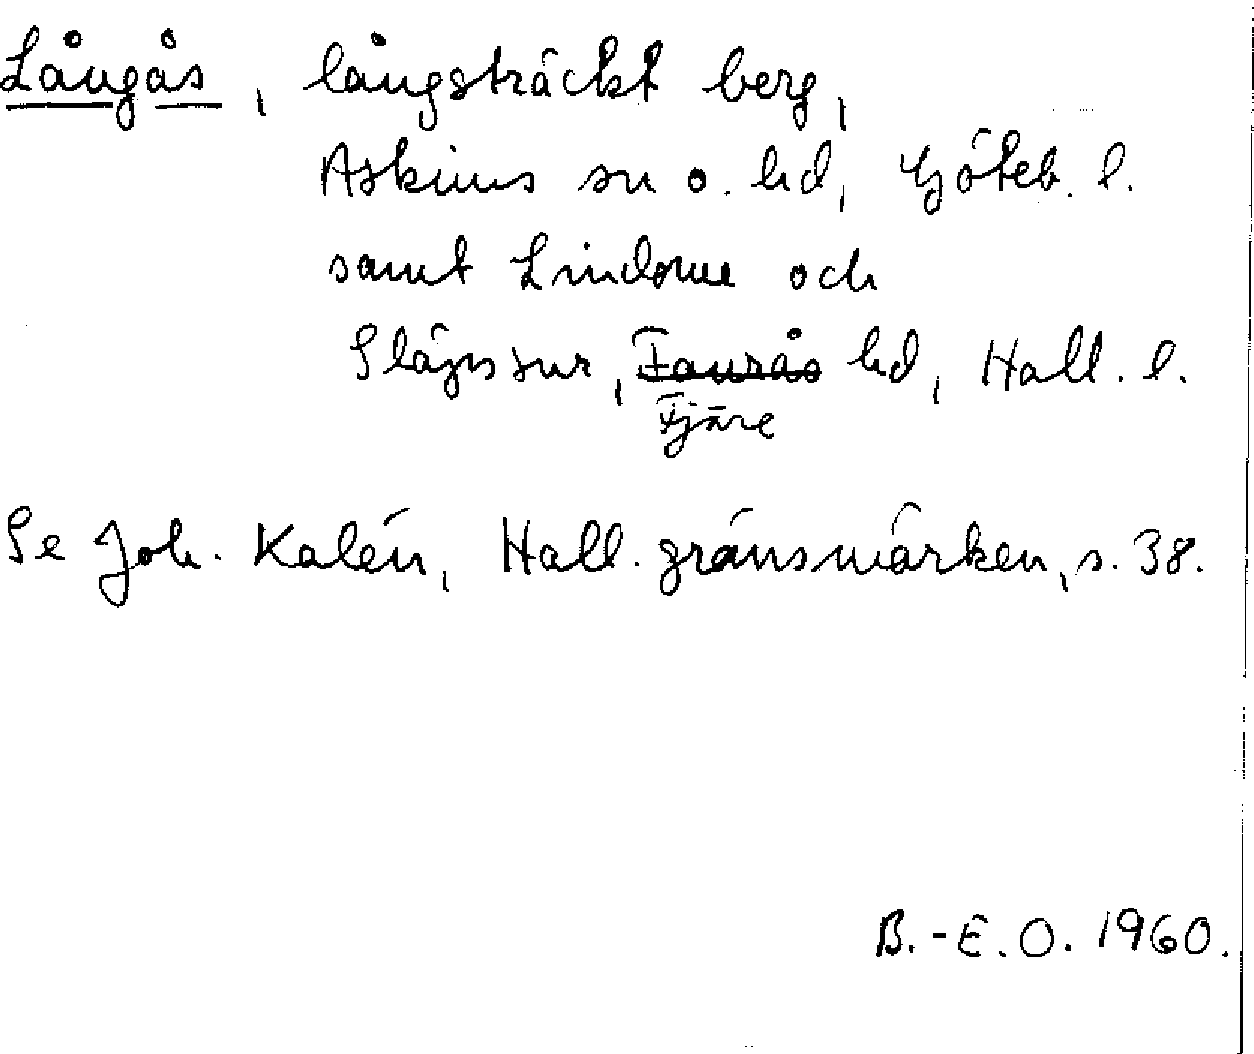 Långås, långsträckt berg,
Askims sn o. hd, Göteb. l.
samt Lindome och
Släps snr, Faurås hd, Hall. l.
Fjäre
Se Joh. Kalén, Hall. gränsmärken, s. 38.
B.-E.O. 1960.